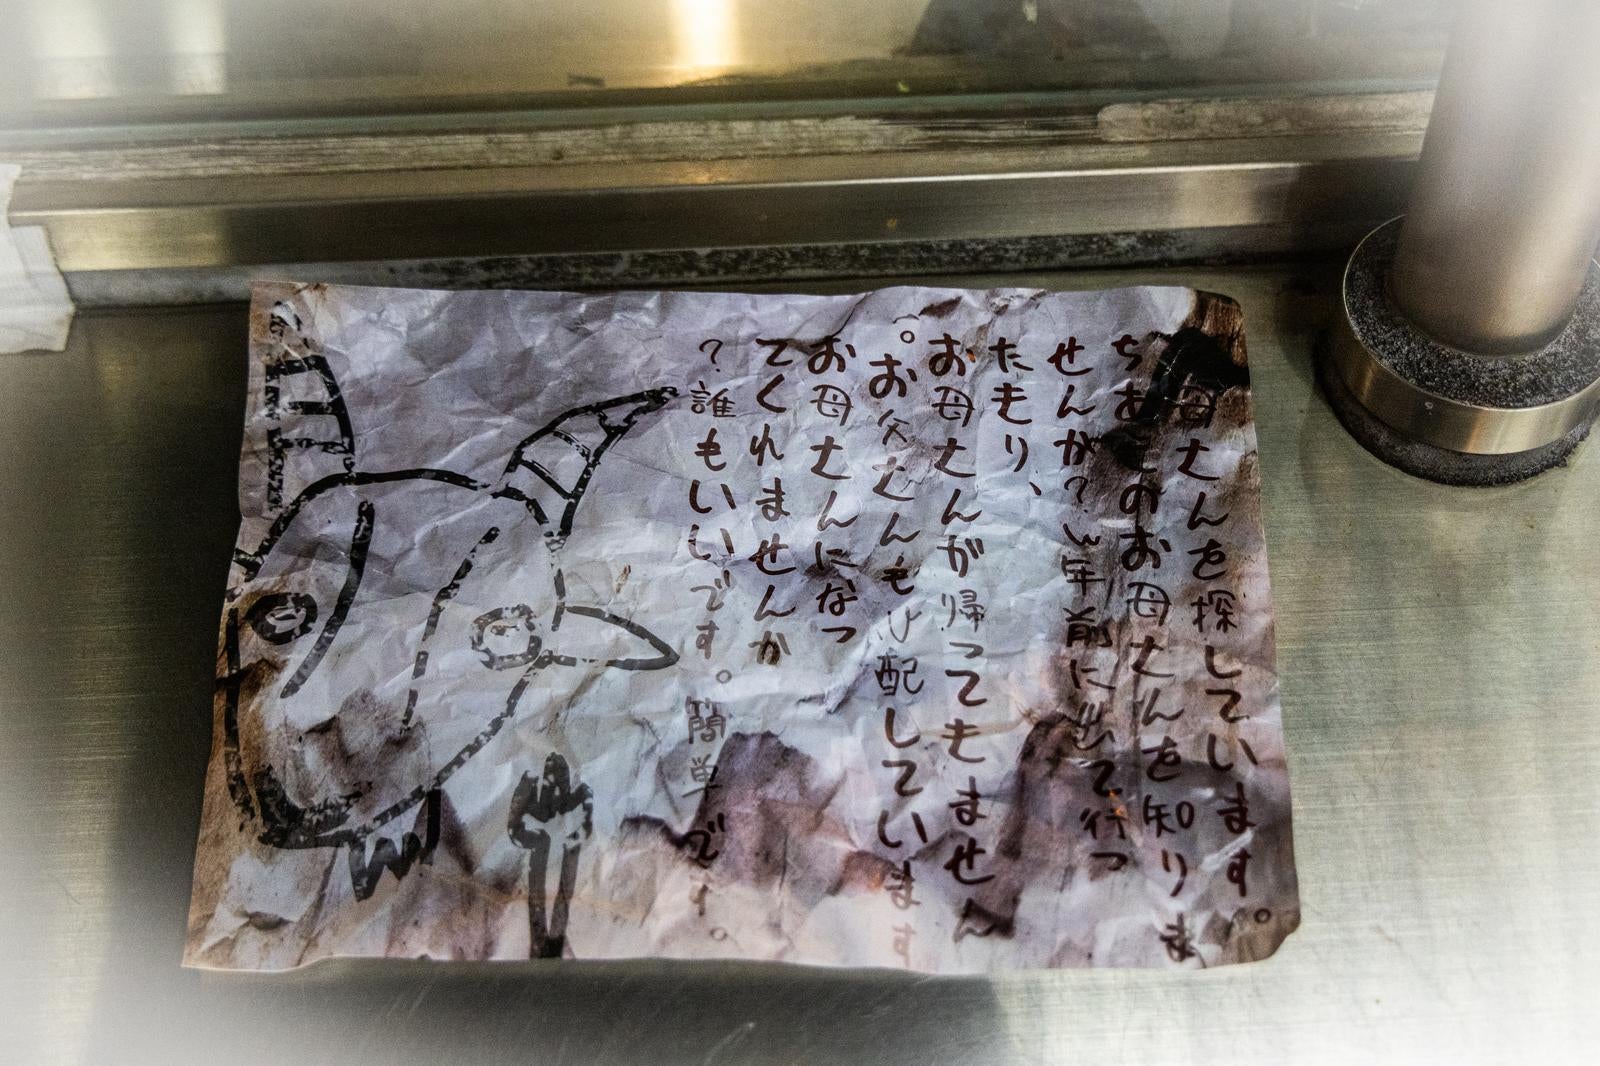 母さんを探しています。
ちあこのお母さんを知りま
せんか?い年前に出て行っ
たもり、
お母さんが帰ってもません
。お父さんも心配しています
お母さんになっ
てくれませんか
?誰もいいです。簡単です。